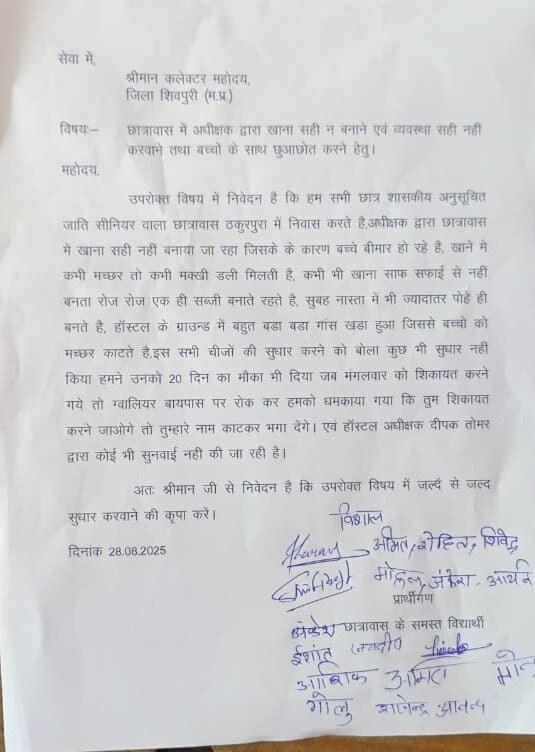 सेवा में,
श्रीमान कलेक्टर महोदय,
जिला शिवपुरी (म.प्र.)
विषयः– छात्रावास में अधीक्षक द्वारा खाना सही न बनाने एवं व्यवस्था सही नही
करवाने तथा बच्चों के साथ छुआछोत करने हेतु।
महोदय,
उपरोक्त विषय में निवेदन है कि हम सभी छात्र शासकीय अनुसूचित
जाति सीनियर वाला छात्रावास ठकुरपुरा में निवास करते है,अधीक्षक द्वारा छात्रावास
में खाना सही नहीं बनाया जा रहा जिसके के कारण बच्चे बीमार हो रहे है, खाने मे
कभी मच्छर तो कभी मक्खी डली मिलती है, कभी भी खाना साफ सफाई से नहीं
बनता रोज रोज एक ही सब्जी बनाते रहते है, सुबह नास्ता में भी ज्यादातर पोहें ही
बनते है, हॉस्टल के ग्राउन्ड में बहुत बडा बडा गांस खडा हुआ जिससे बच्चो को
मच्छर काटते है,इस सभी चीजों की सुधार करने को बोला कुछ भी सुधार नहीं
किया हमने उनको 20 दिन का मौका भी दिया जब मंगलवार को शिकायत करने
गये तो ग्वालियर बायपास पर रोक कर हमको धमकाया गया कि तुम शिकायत
करने जाओगे तो तुम्हारे नाम काटकर भगा देंगे। एवं हॉस्टल अधीक्षक दीपक तोमर
द्वारा कोई भी सुनवाई नहीं की जा रही है।
अतः श्रीमान जी से निवेदन है कि उपरोक्त विषय में जल्द से जल्द
सुधार करवाने की कृपा करें।
विशाल
दिनांक 28.08.2025
अमित, रोहित, शिवेन्द्र
अंकेश - आर्यन
प्रार्थीगण
अंकेश छात्रावास के समस्त विद्यार्थी
ईशांत जगदीप
आशिक
गोलु आनन्द